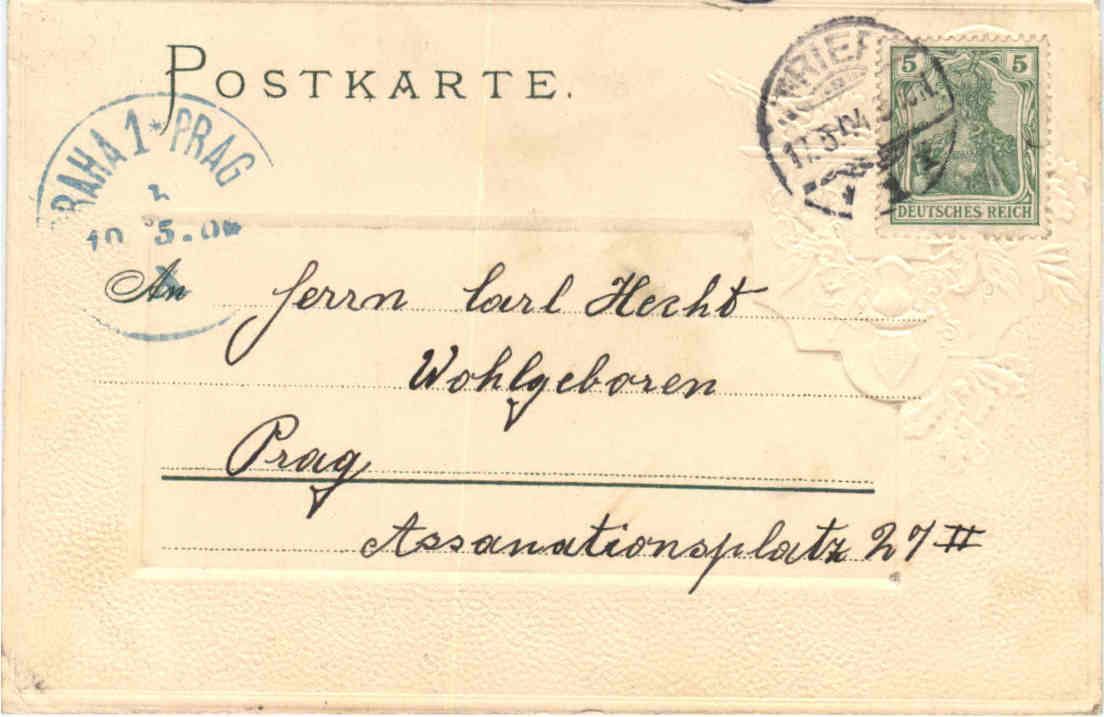 POSTKARTE.
TRIER
17.5.04
5 5
DEUTSCHES REICH
PRAHA 1 * PRAG
5.04
An Herrn Carl Hecht
Wohlgeboren
Prag
Assanationsplatz 27 II